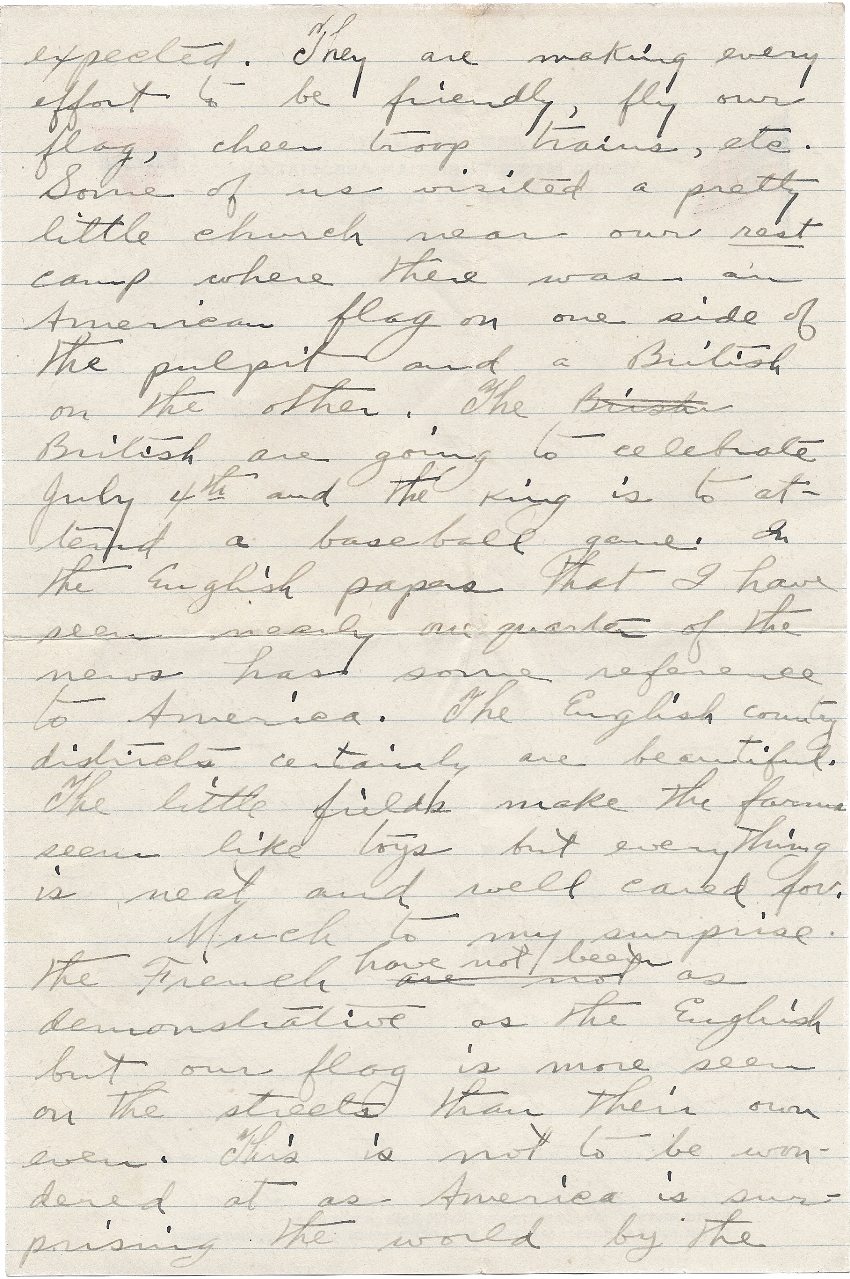 expected. They are making every
effort to be friendly, fly our
flag, cheer troop trains, etc.
Some of us visited a pretty
little church near our rest
camp where there was an
American flag on one side of
the pulpit and a British
on the other. The
British are going to celebrate
July 4th and the King is to at-
tend a baseball game. In
the English papers that I have
seen nearly one quarter of the
news has some reference
to America. The English county
districts certainly are beautiful.
The little fields make the farms
seem like toys but everything
is neat and well cared for.
Much to my surprise.
have not been
the French are not as
demonstrative as the English
but our flag is more seen
on the streets than their own
even. This is not to be won-
dered at as America is sur-
prising the world by the